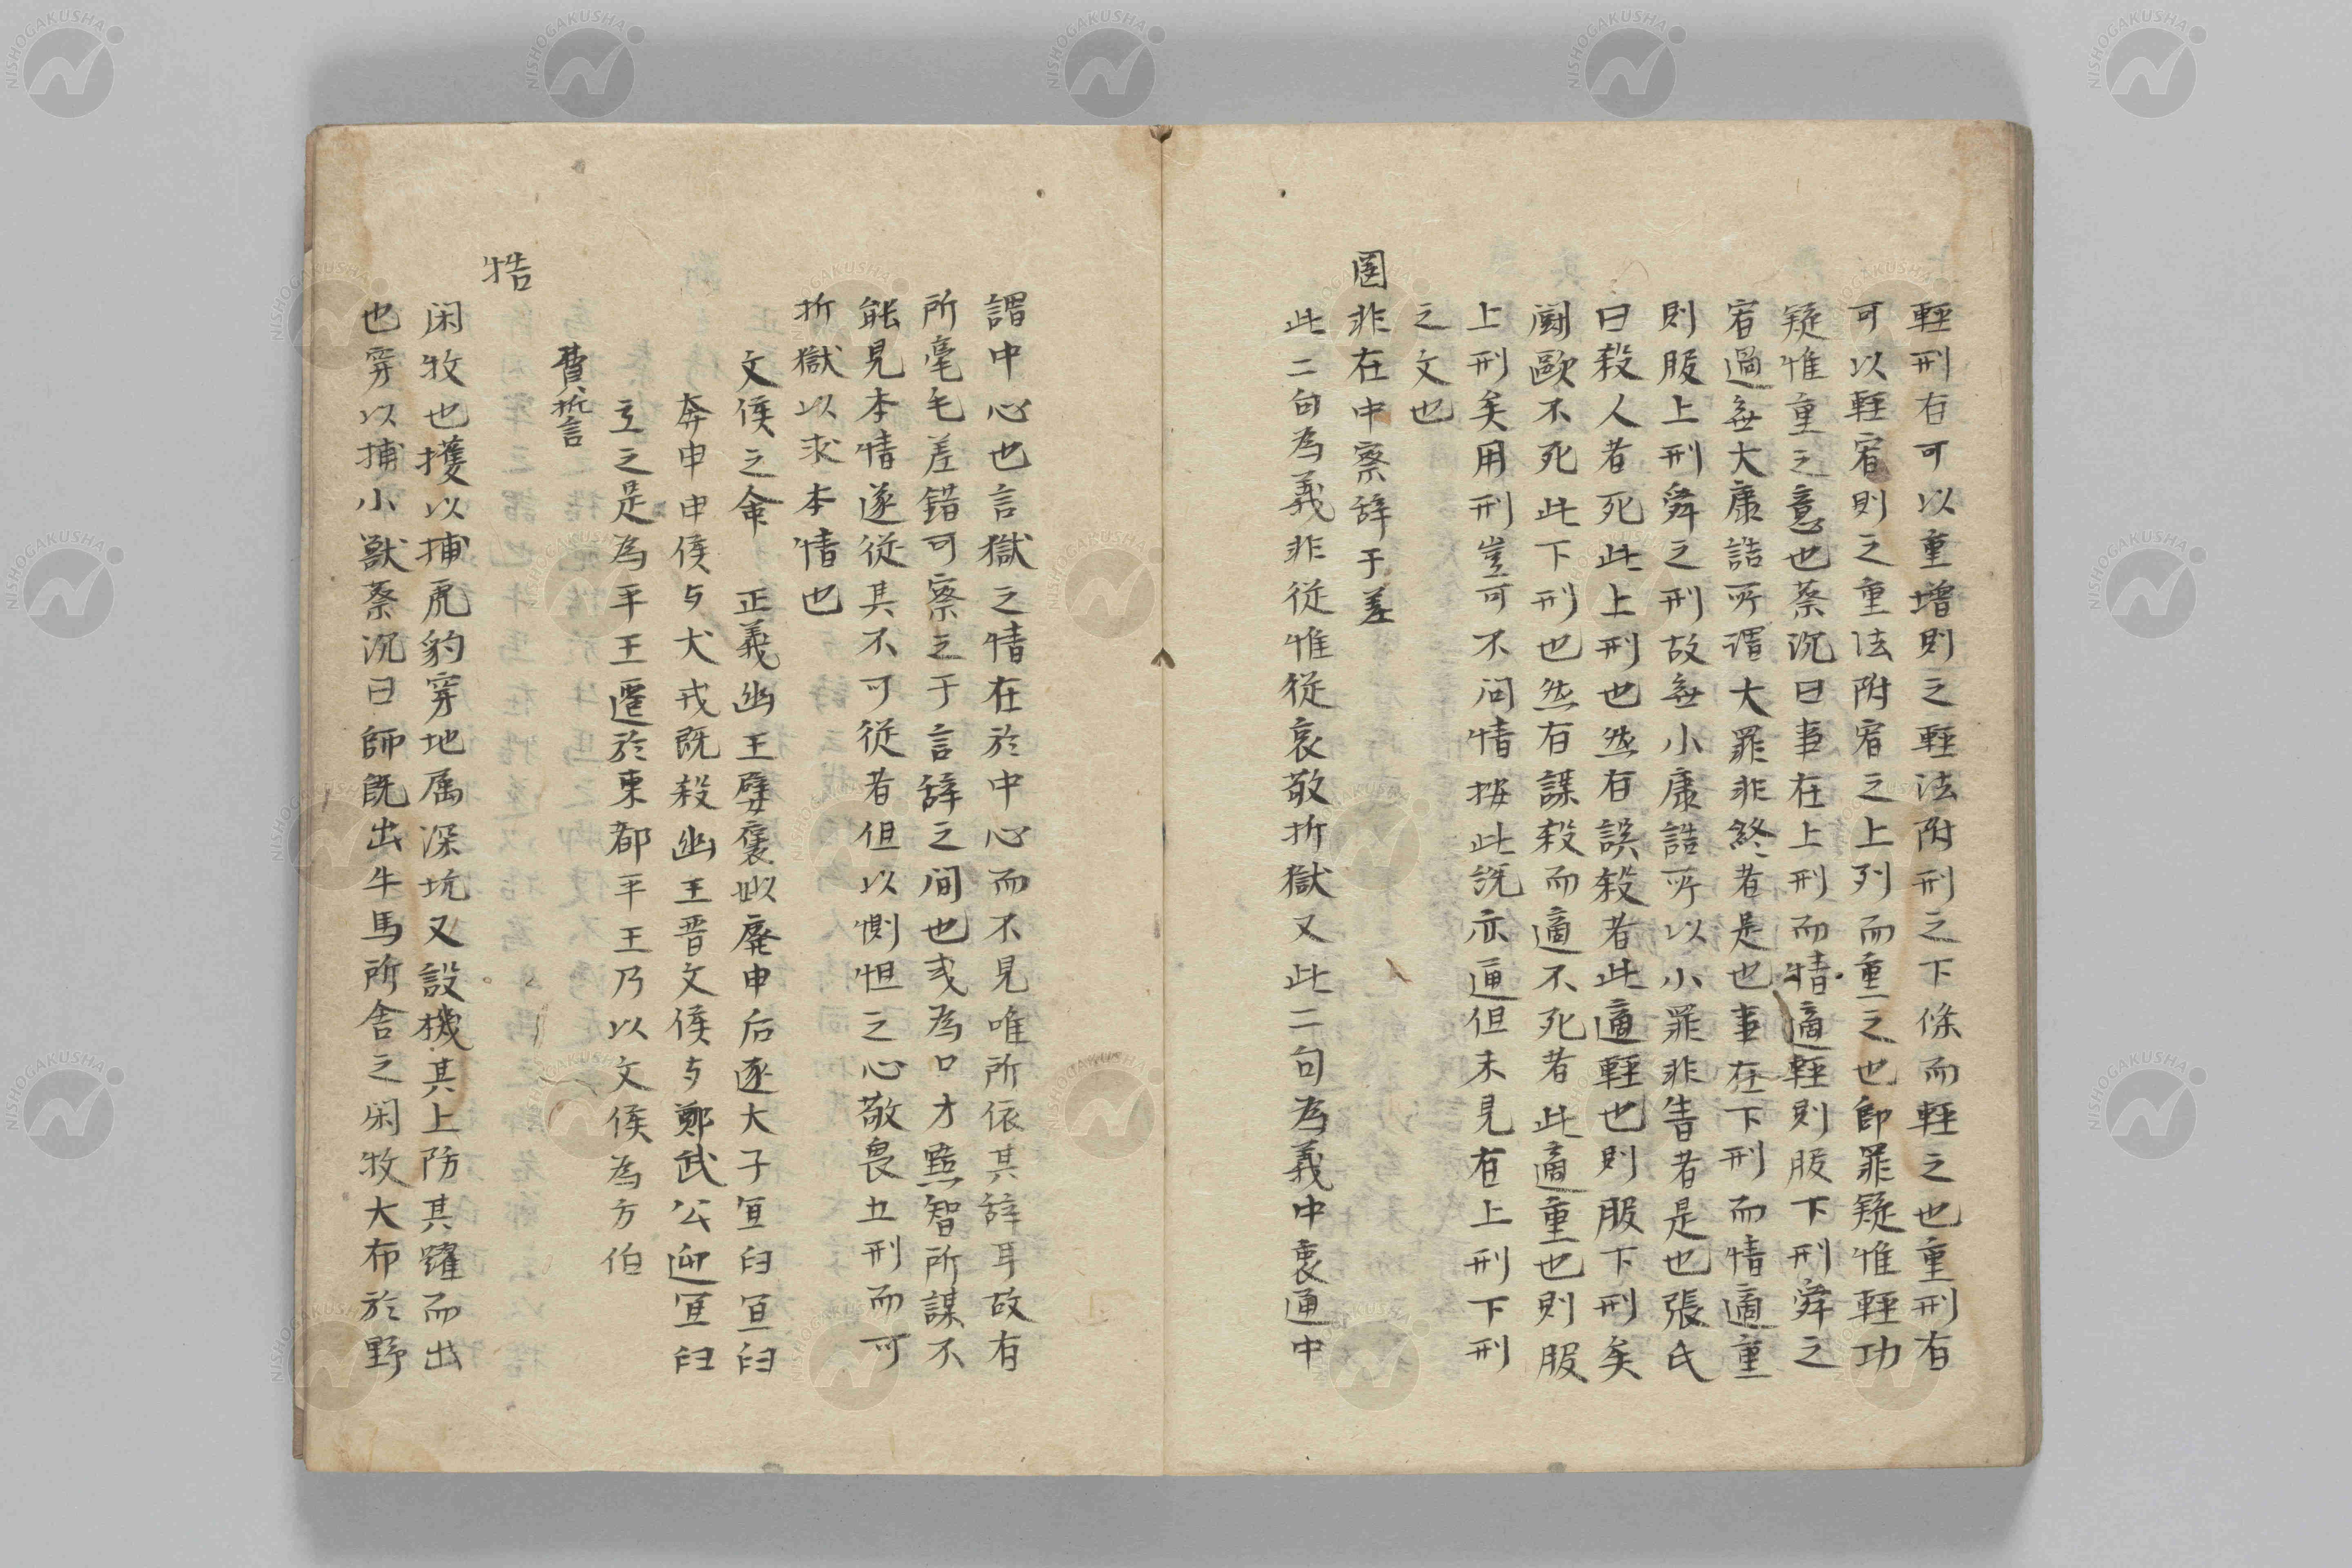 輕刑有可以重增則之輕法附刑之下條而輕之也重刑有
可以輕宥則之重法附宥之上列而重之也即罪疑惟輕功
疑惟重之意也蔡沉曰事在上刑而情適輕則服下刑舜之
宥過無大康誥所謂大罪非終者是也事在下刑而情適重
則服上刑舜之刑故無小康誥所以小罪非眚者是也張氏
曰殺人者死此上刑也然有誤殺者此適輕也則服下刑矣
鬪歐不死此下刑也然有謀殺而適不死者此適重也則服
上刑矣用刑豈可不问情按此説亦通但未見有上刑下刑
之文也
罔非在中察辞于差
此二句為義非従惟従哀敬折獄又此二句為義中衷通中
謂中心也言獄之情在於中心而不見唯所依其辞耳故有
所毫毛差錯可察之于言辞之间也或為口才黠智所謀不
能見本情遂従其不可従者但以惻怛之心敬畏五刑而可
折獄以求本情也
文侯之命　正義幽王嬖褒姒廃申后逐大子宜臼宜臼
奔申申侯与犬戎既殺幽王晋文侯与鄭武公迎宜臼
立之是為平王遷於東都平王乃以文侯為方伯
費誓
牿
闲牧也擭以捕虎豹穿地属深坑又設機其上防其躍而出
也穽以捕小獣蔡沉曰師既出牛馬所舎之闲牧大布於野
NISHOGAKUSHA